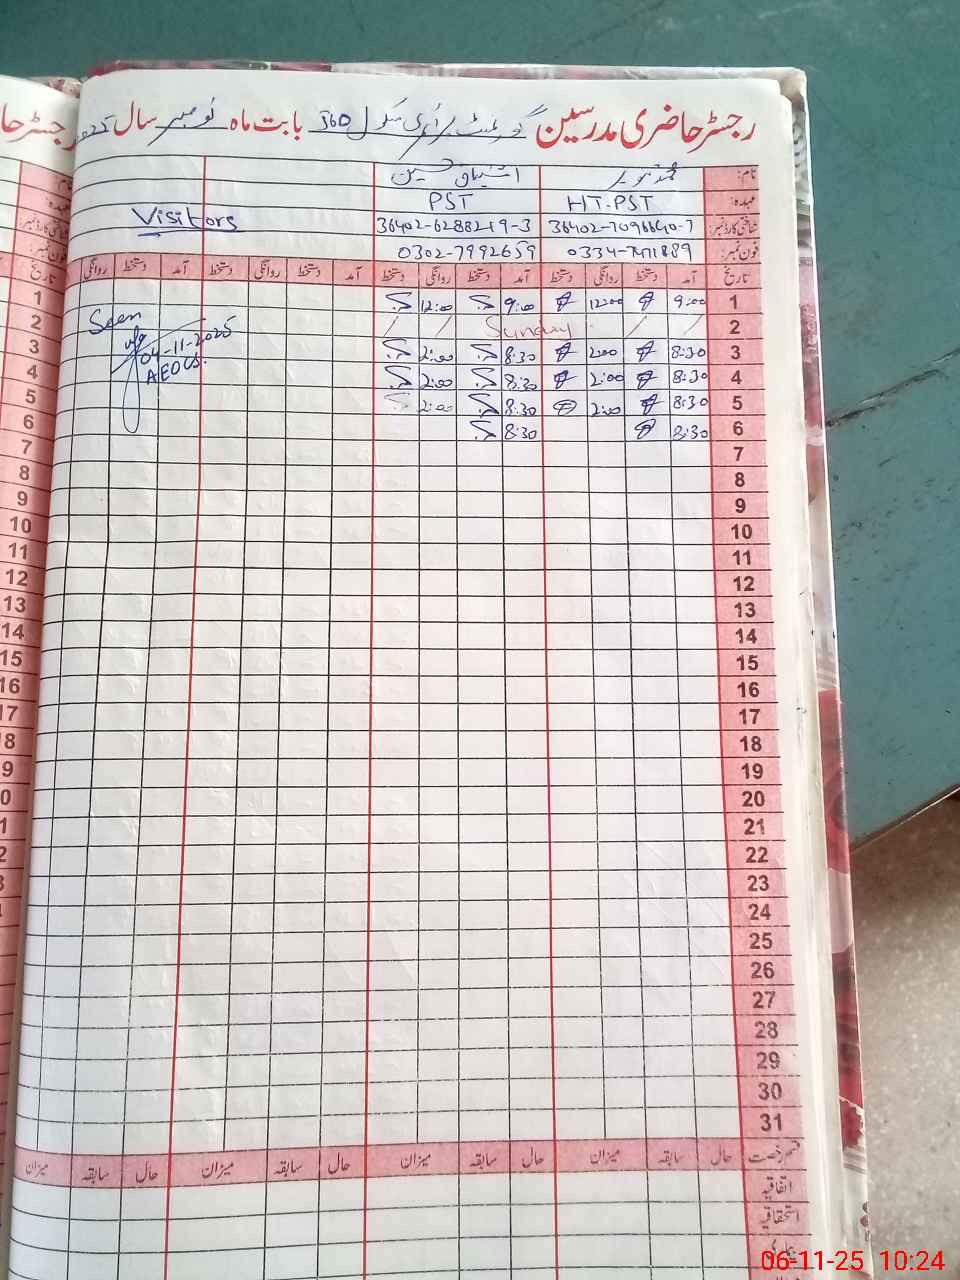 رجسٹر حاضری مدرسین گورنمنٹ پرائمری سکول 360 بابت ماہ نومبر سال 2025
نام: اشتیاق حسین
عہدہ: HT-PST PST
Visitors
شناختی کارڈ نمبر: 36402-6288219-3
فون نمبر: 0302-7992659
تاریخ آمد دستخط روانگی دستخط آمد دستخط روانگی دستخط آمد دستخط روانگی دستخط آمد دستخط روانگی
1 9:00 12:00 9:00 12:00
2 Sunday
3 8:30 2:00 8:30 2:00
4 8:30 2:00 8:30 2:00
5 8:30 2:00 8:30 2:00
6 8:30 8:30
Seen
04-11-2025
AEO
7
8
9
10
11
12
13
14
15
16
17
18
19
20
21
22
23
24
25
26
27
28
29
30
31
قسم رخصت حال سابقہ میزان حال سابقہ میزان حال سابقہ میزان حال سابقہ میزان
اتفاقیہ
استحقاقیہ
بیماری
06-11-25 10:24